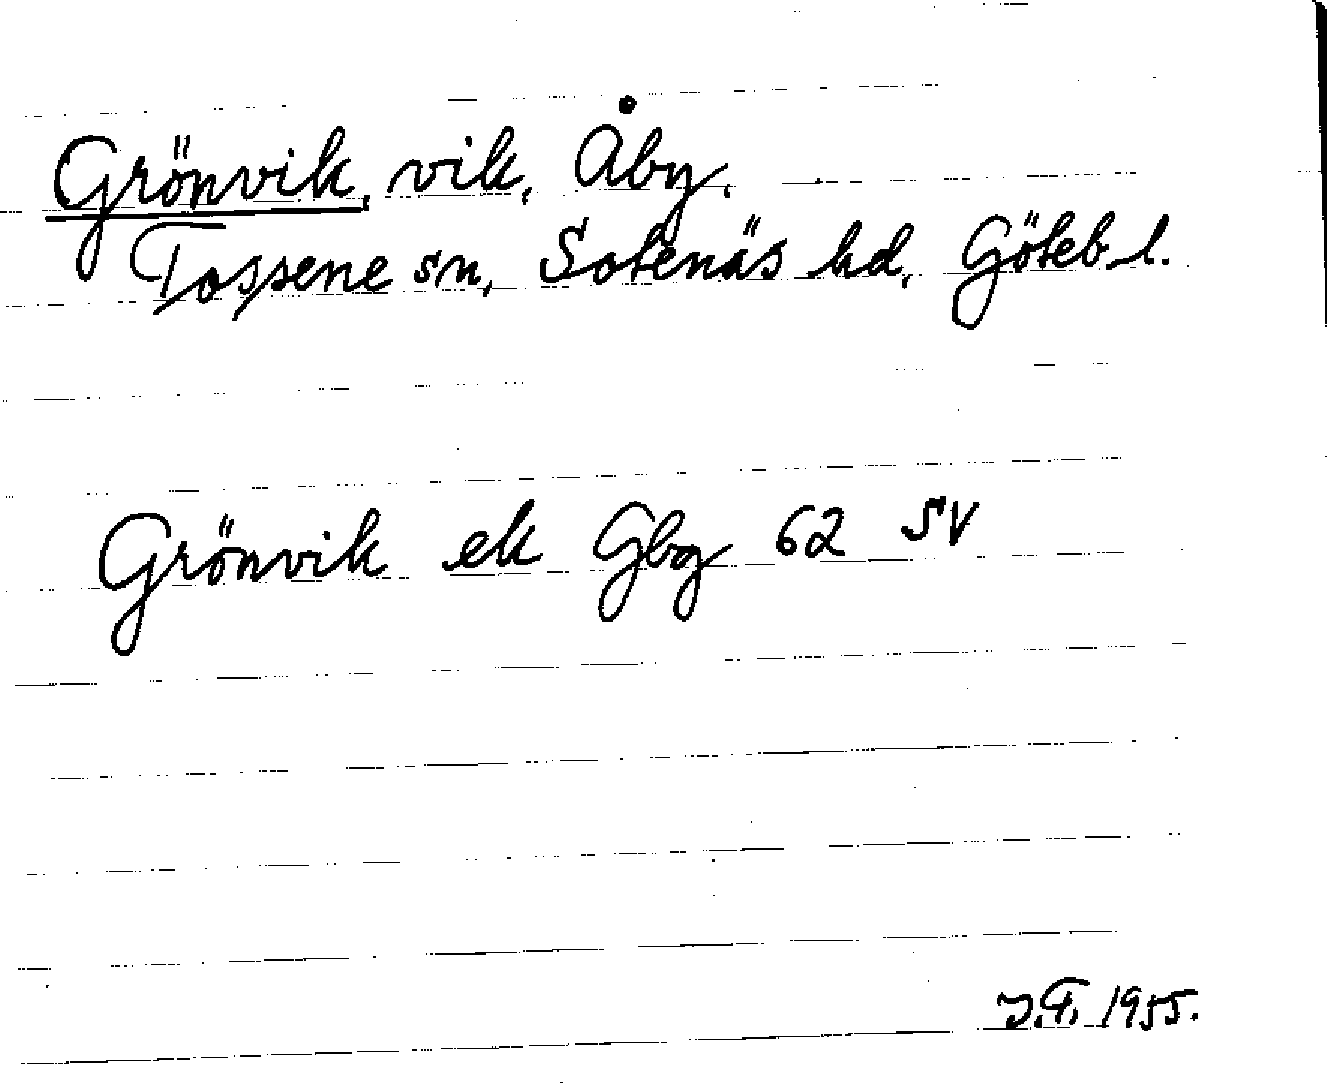 Grönvik, vik, Åby,
Tossene sn, Sotenäs hd, Göteb. l.
Grönvik ek Gbg 62 SV
J.F. 1955.